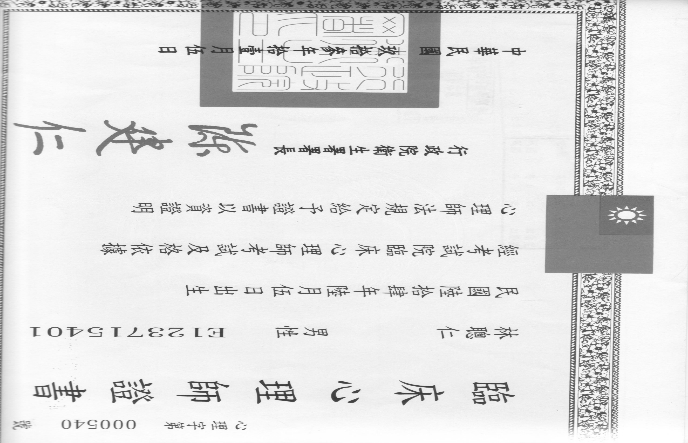 心理字第 000540 號
臨床心理師證書
林聰仁 男性 E123715401
民國陸拾肆年陸月伍日出生
經考試院臨床心理師考試及格依據
心理師法規定給予證書以資證明
行政院衛生署署長 陳建仁
中華民國玖拾參年拾壹月伍日